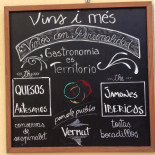 Vins i més
Vinos con Personalidad
Gastronomia
es
Territorio
the
QUESOS
Artesanos
the
JAMONES
IBERICOS
conservas
de
tostas
bocadillos
Vermut